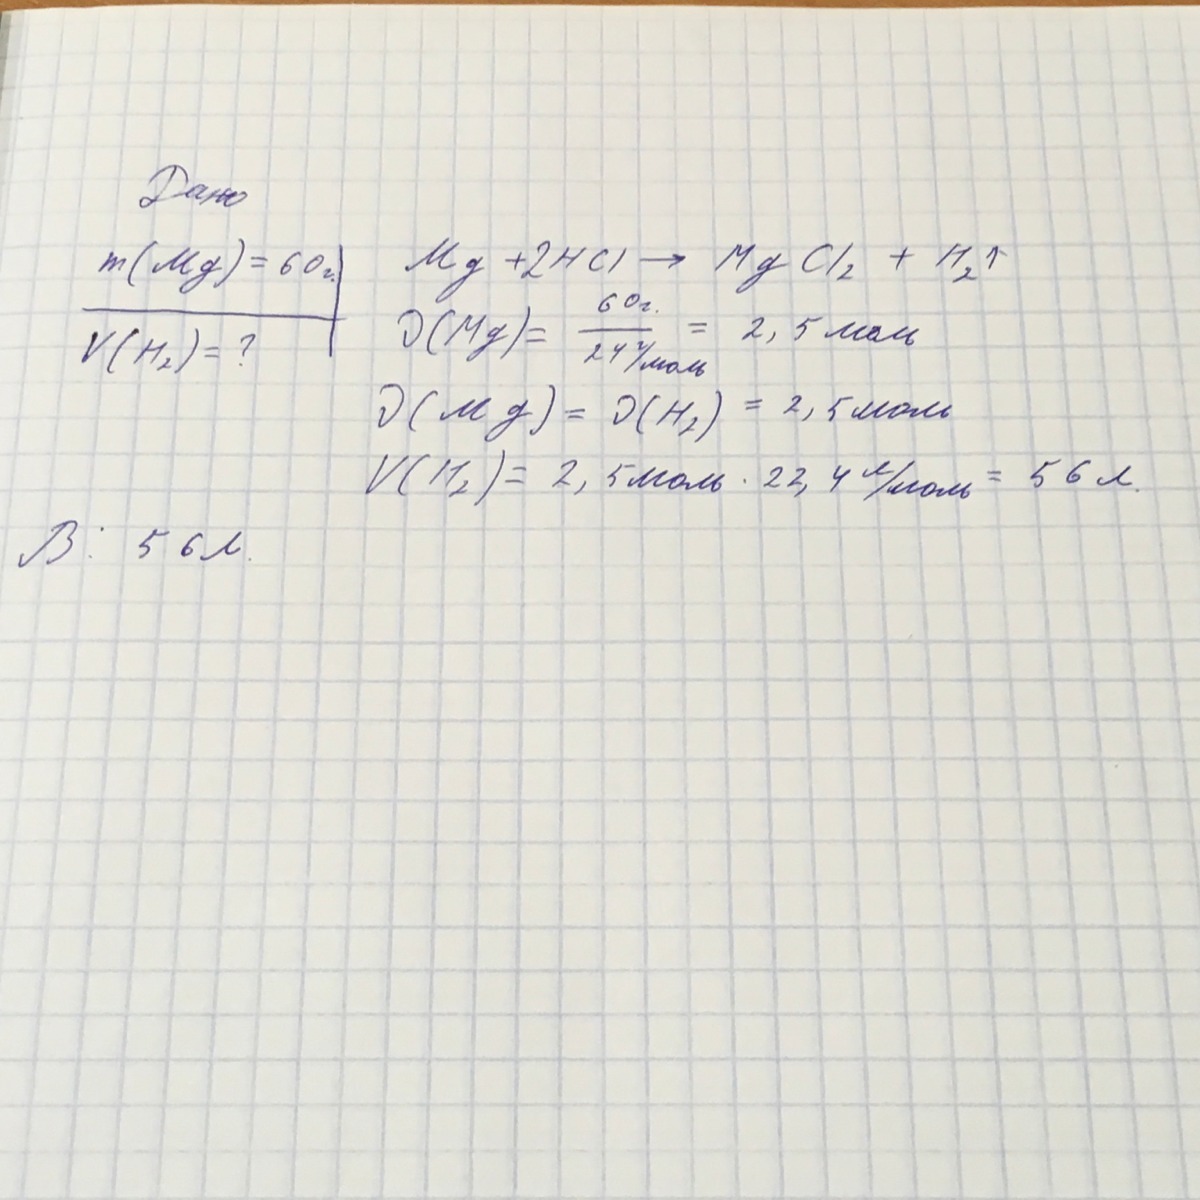 Дано
m(Mg)=60г.
V(H₂)=?
Mg+2HCl→MgCl₂+H₂↑
υ(Mg)=60г./24г/моль=2,5моль
υ(Mg)=υ(H₂)=2,5моль
V(H₂)=2,5моль·22,4л/моль=56л.
В: 56л.